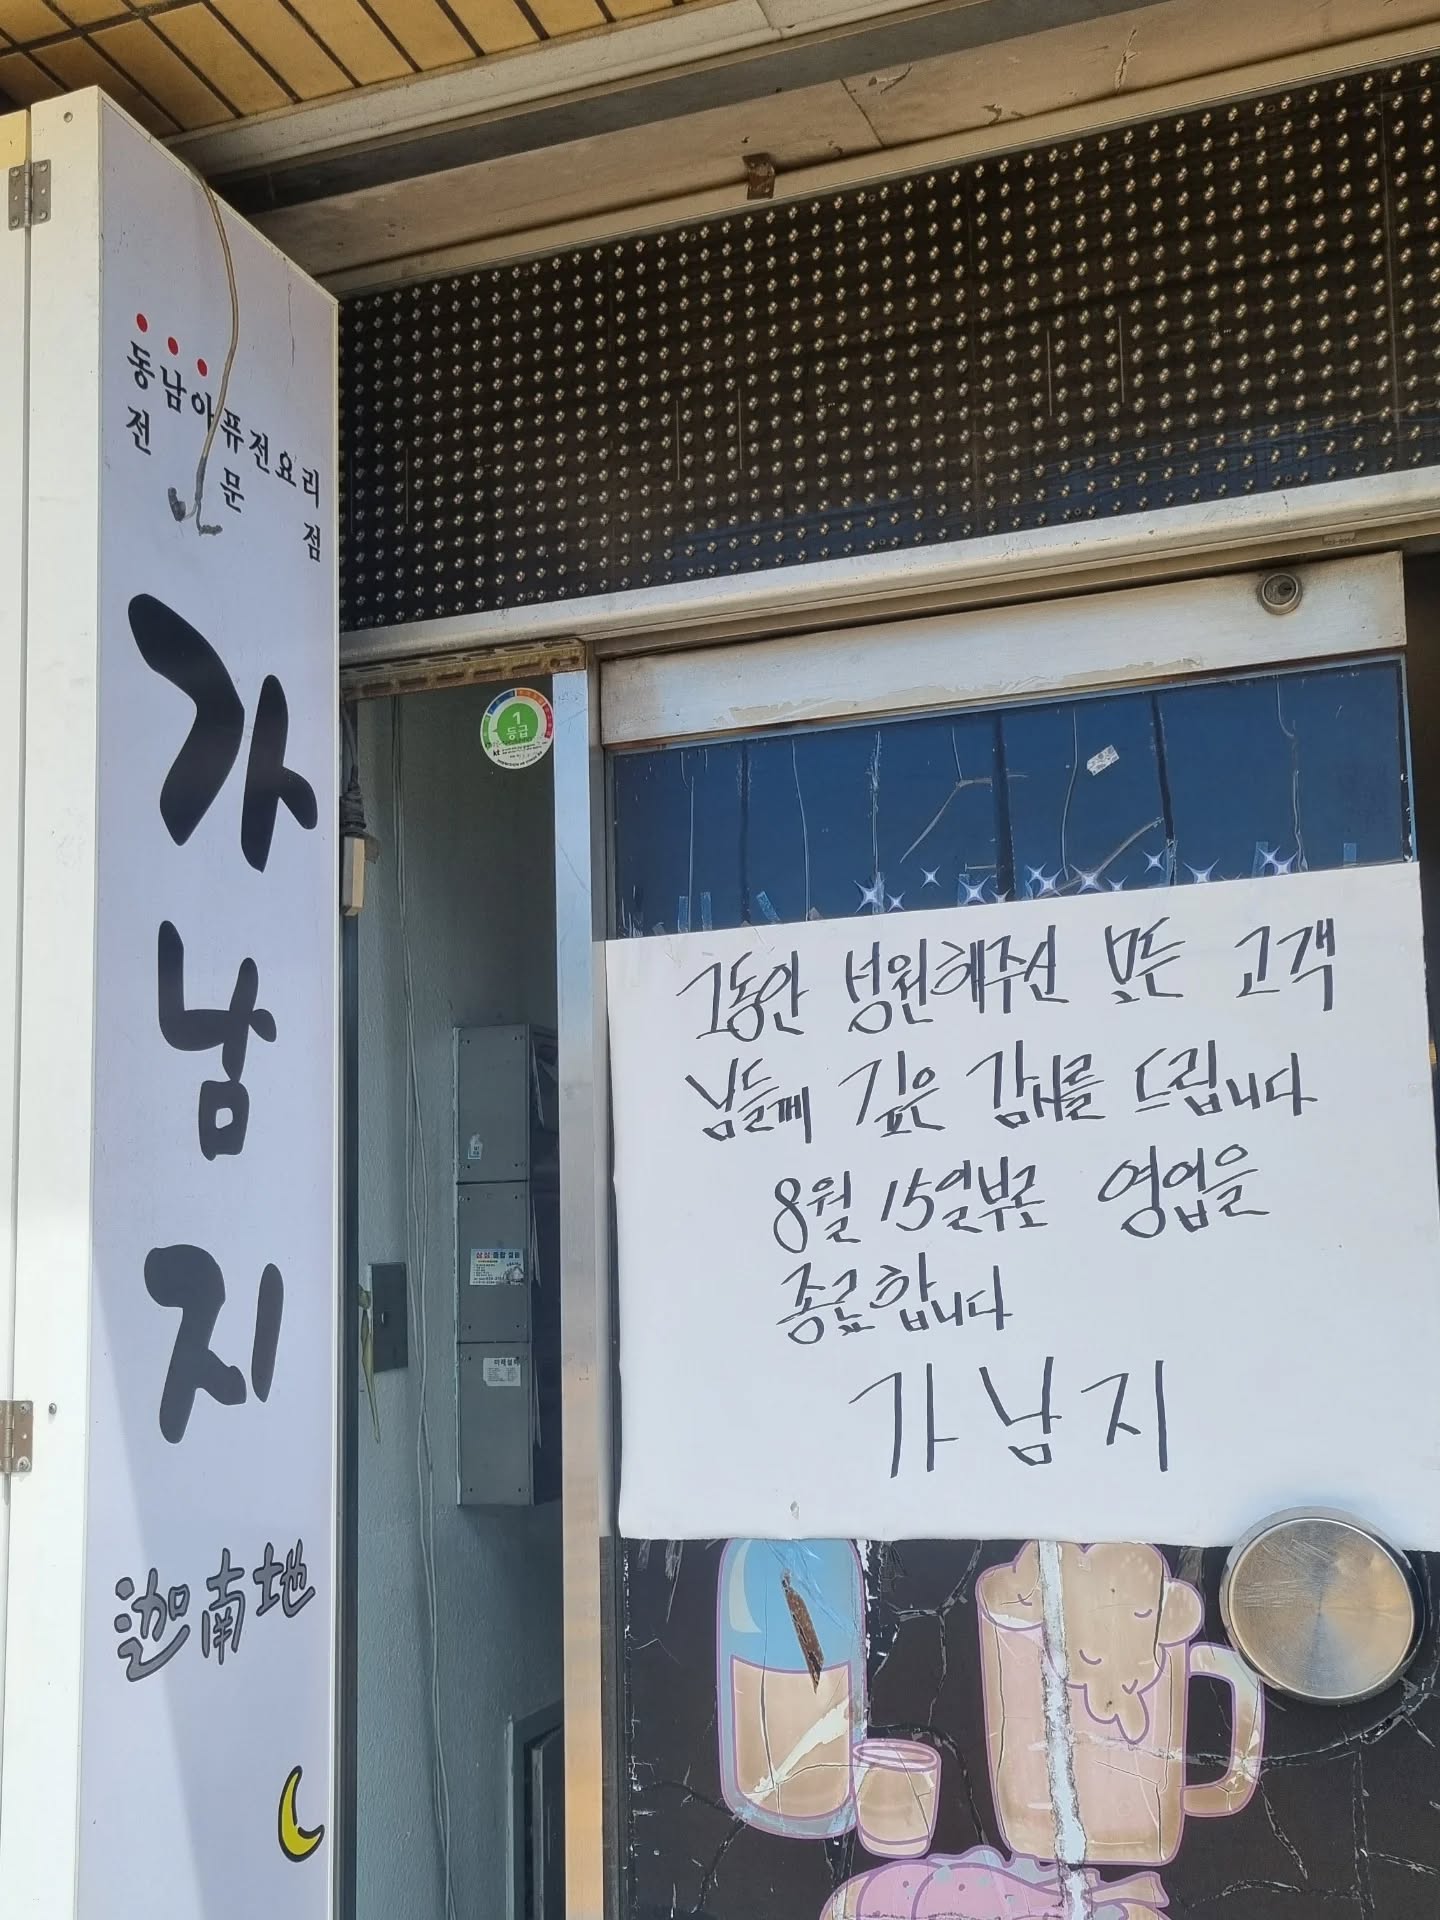 동남아퓨전요리
전문점
가남지
迦南地
1
등급
kt
그동안 성원해주신 모든 고객
님들께 깊은 감사를 드립니다
8월 15일부로 영업을
종료합니다
가남지